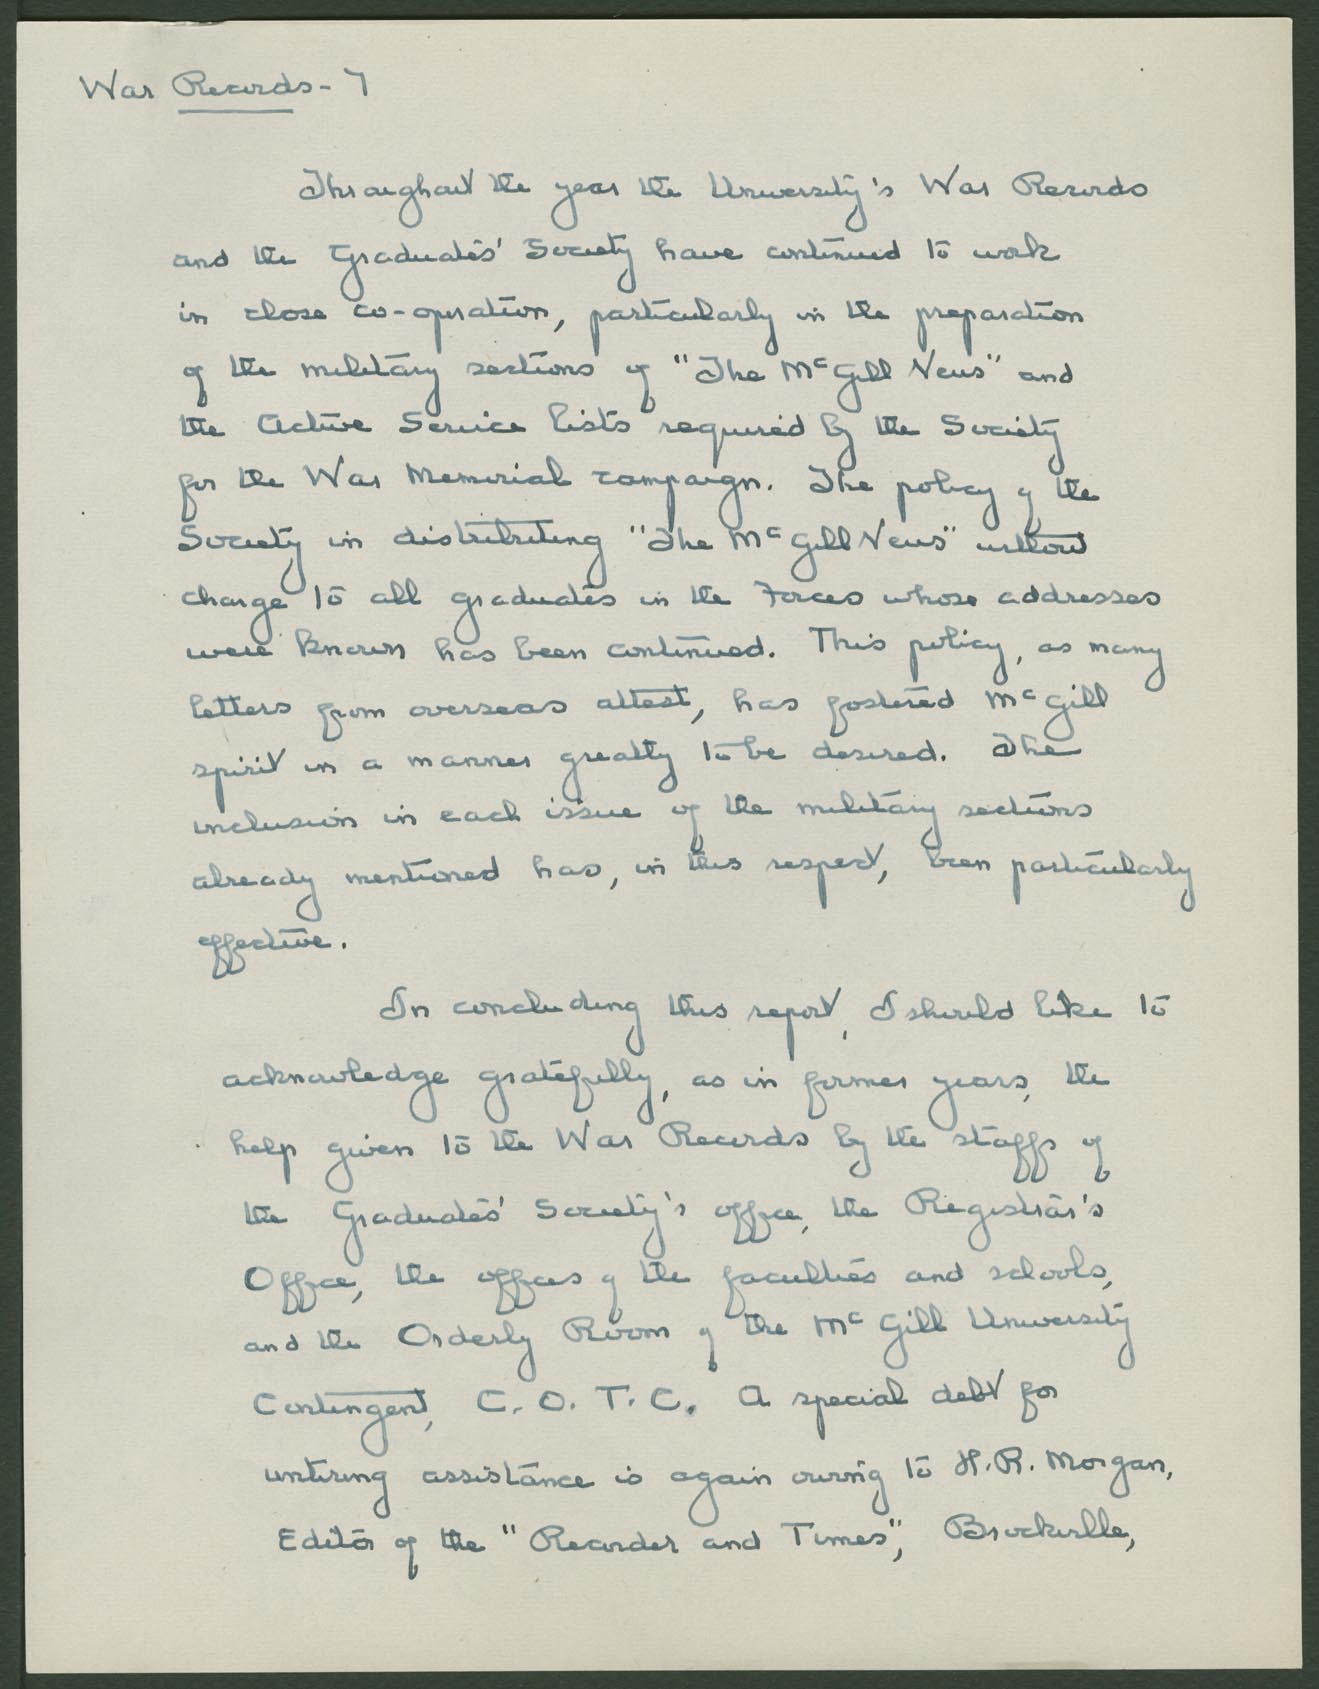 War Records - 7
Throughout the year the University's War Records
and the Graduates' Society have continued to work
in close co-operation, particularly in the preparation
of the military sections of "The McGill News" and
the Active Service lists required by the Society
for the War Memorial campaign. The policy of the
Society in distributing "The McGill News" without
charge to all graduates in the Forces whose addresses
were known has been continued. This policy, as many
letters from overseas attest, has fostered McGill
spirit in a manner greatly to be desired. The
inclusion in each issue of the military sections
already mentioned has, in this respect, been particularly
effective.
In concluding this report, I should like to
acknowledge gratefully, as in former years, the
help given to the War Records by the staffs of
the Graduates' Society's office, the Registrar's
Office, the offices of the faculties and schools,
and the Orderly Room of the McGill University
Contingent, C.O.T.C. A special debt for
untiring assistance is again owing to H.R. Morgan,
Editor of the "Recorder and Times", Brockville,